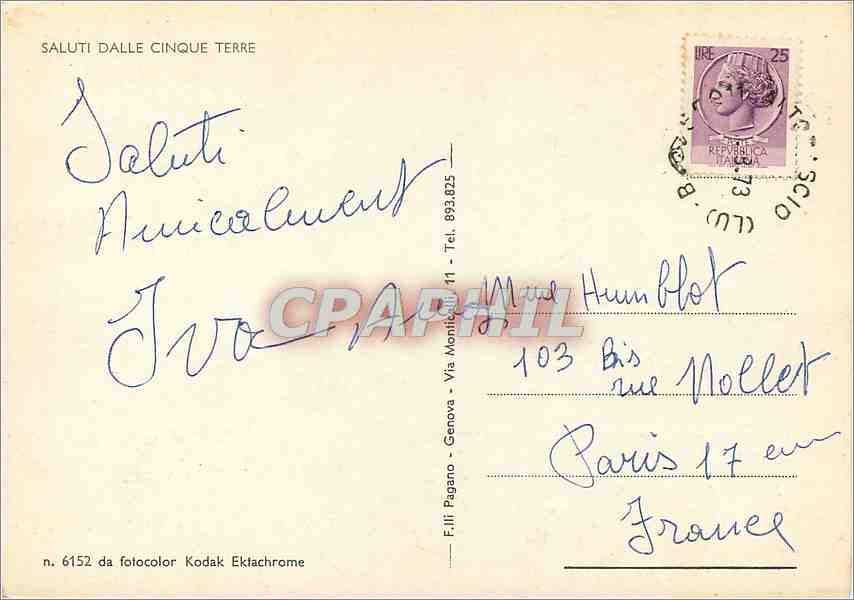 SALUTI DALLE CINQUE TERRE
Saluti
Amicalment
Iva
n. 6152 da fotocolor Kodak Ektachrome
F.lli Pagano - Genova - Via Monticelli, 11 - Tel. 893.825
LIRE 25
POSTE
REPVBBLICA
ITALIANA
SCIO (LU)
73
CPAPHIL
Mme Humblot
103 Bis
rue Nollet
Paris 17 em
France